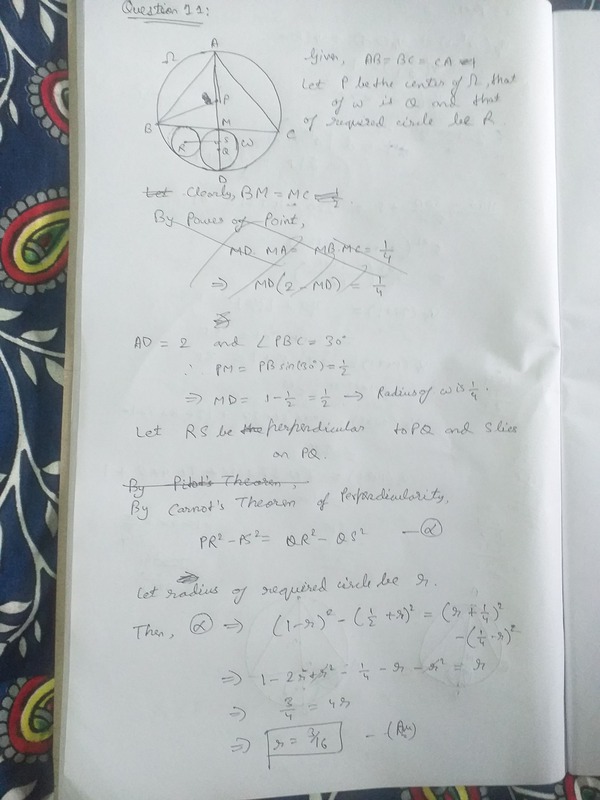 Question 11:
Ω
A
P
B
M
C
R
S
Q
ω
D
Given, AB = BC = CA
Let P be the center of Ω, that
of ω is Q and that
of required circle be R.
Let Clearly, BM = MC = 1/2
By Power of Point,
MD. MA = MB. MC = 1/4
⇒ MD(2 - MD) = 1/4
AD = 2 and ∠PBC = 30°
∴ PM = PB sin(30°) = 1/2
⇒ MD = 1 - 1/2 = 1/2 → Radius of ω is 1/4.
Let RS be the perpendicular to PQ and S lies
on PQ.
By Pitot's Theorem,
By Carnot's Theorem of Perpendicularity,
PR² - PS² = QR² - QS² — (α)
Let radius of required circle be r.
Then, (α) ⇒ (1-r)² - (1/2 + r)² = (r + 1/4)²
- (1/4 - r)²
⇒ 1 - 2r + r² - 1/4 - r - r² = r
⇒ 3/4 = 4r
⇒ r = 3/16 - (Ans)